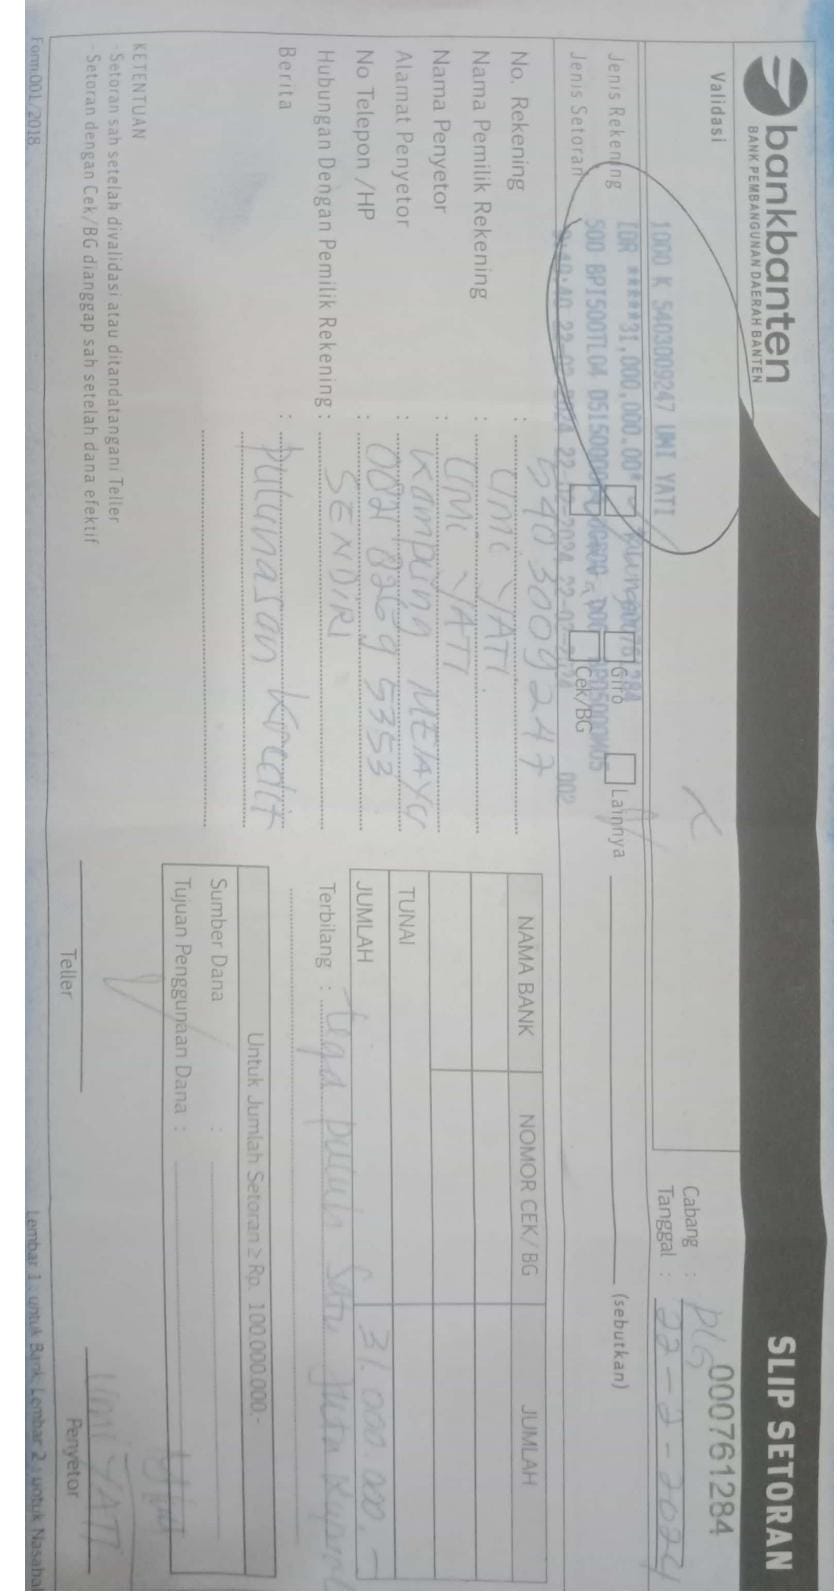 bankbanten
BANK PEMBANGUNAN DAERAH BANTEN
SLIP SETORAN
000761284
Validasi
1000 K 5403009247 UMI YATI
IDR *****31,000,000.00*
500 BPI500TL04
Cabang : PLG
Tanggal : 22-2-2024
Jenis Rekening
Giro
Lainnya
(sebutkan)
Jenis Setoran
Cek/BG
No. Rekening : 5403009247
Nama Pemilik Rekening : UMI YATI
Nama Penyetor : UMI YATI
Alamat Penyetor : KAMPUNG MELAYU
No Telepon /HP : 0821 8269 5353
Hubungan Dengan Pemilik Rekening : SENDIRI
Berita : Pulunasan Kredit
NAMA BANK
NOMOR CEK/ BG
JUMLAH
TUNAI
JUMLAH
31.000.000.-
Terbilang : tiga puluh satu juta Rupiah
Untuk Jumlah Setoran ≥ Rp. 100.000.000.-
Sumber Dana :
Tujuan Penggunaan Dana :
KETENTUAN
- Setoran sah setelah divalidasi atau ditandatangani Teller
- Setoran dengan Cek/BG dianggap sah setelah dana efektif
Teller
UMI YATI
Penyetor
Form.001/2018
Lembar 1 : untuk Bank, Lembar 2 : untuk Nasabah